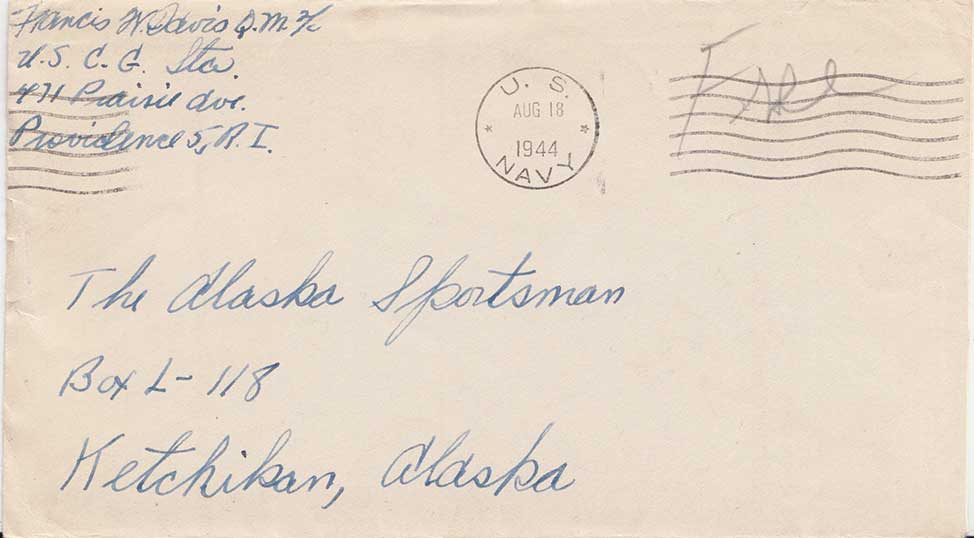 Francis W. Davis Q.M. 3/c
U.S. C. G. Sta.
471 Prairie Ave.
Providence 5, R. I.
U. S.
AUG 18
1944
NAVY
Free
The Alaska Sportsman
Box L-118
Ketchikan, Alaska